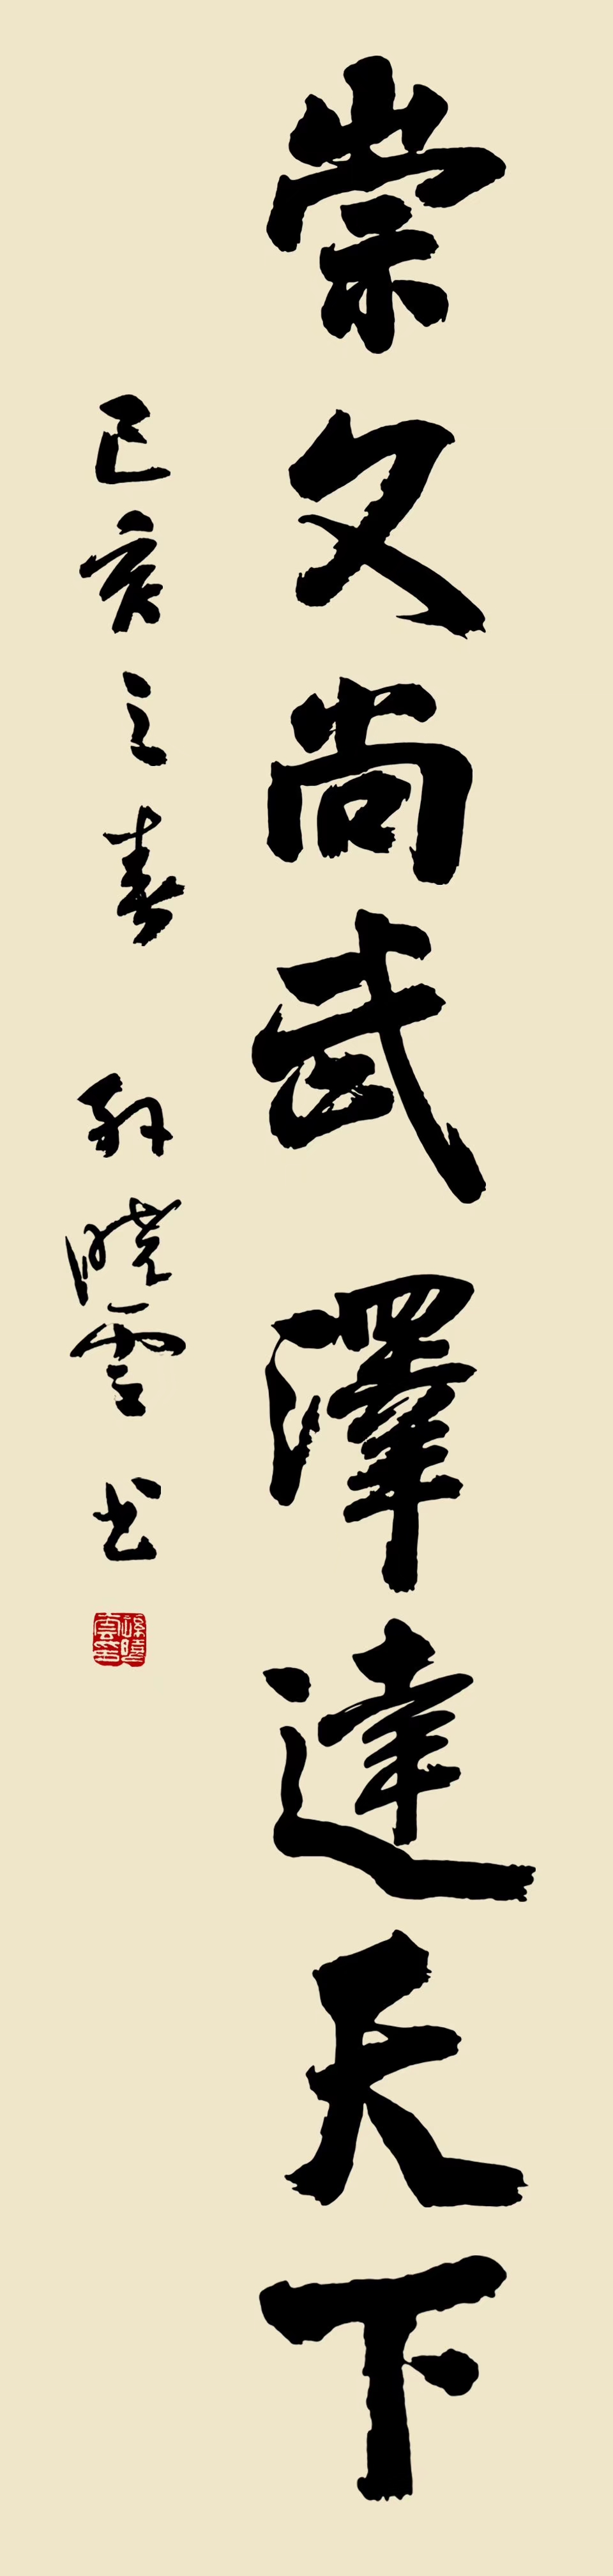 崇文尚武澤達天下
己亥之春 孙曉雲书
孫曉雲印